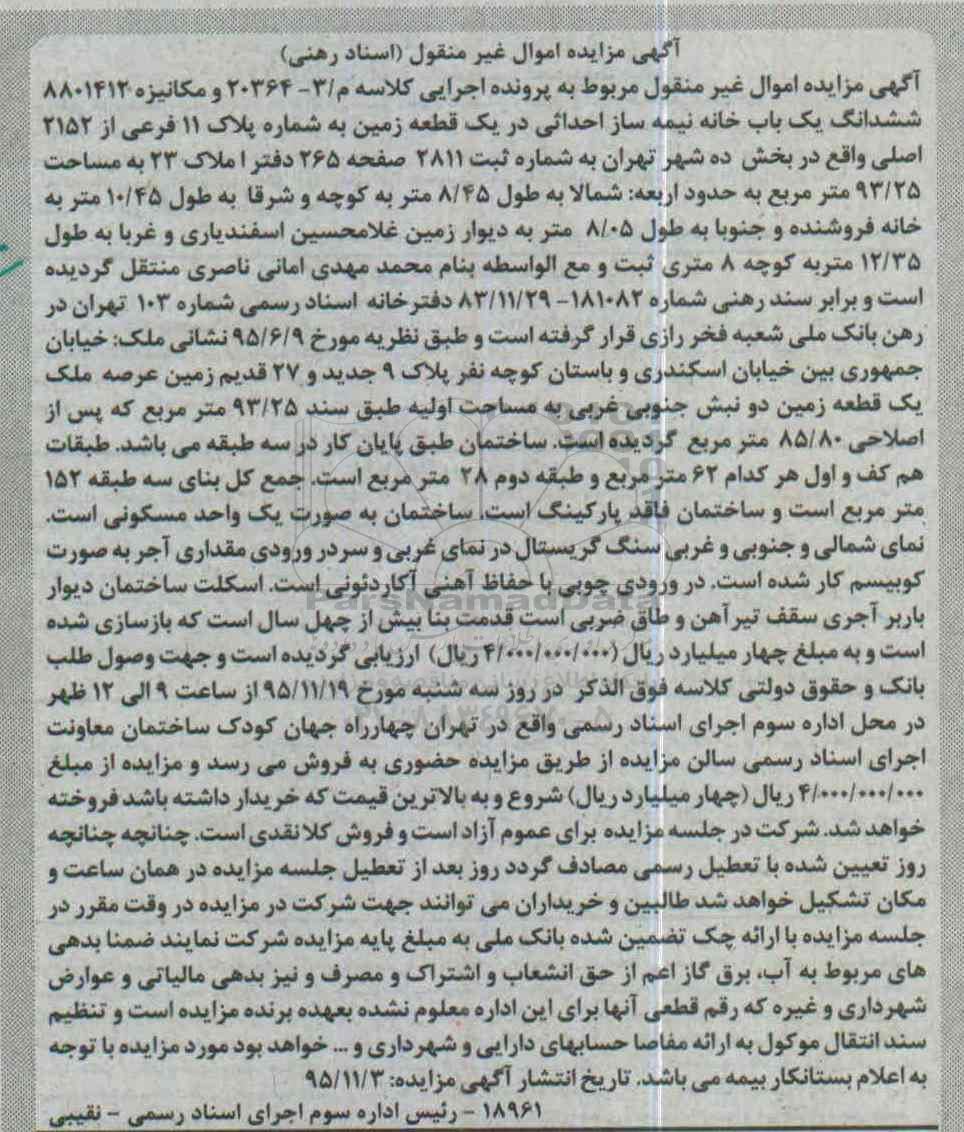 آگهی مزایده اموال غیر منقول (اسناد رهنی)
آگهی مزایده اموال غیر منقول مربوط به پرونده اجرایی کلاسه م/۳- ۲۰۳۶۴ و مکانیزه ۸۸۰۱۴۱۲
ششدانگ یک باب خانه نیمه ساز احداثی در یک قطعه زمین به شماره پلاک ۱۱ فرعی از ۲۱۵۲
اصلی واقع در بخش ده شهر تهران به شماره ثبت ۲۸۱۱ صفحه ۲۶۵ دفتر ا ملاک ۲۳ به مساحت
۹۳/۲۵ متر مربع به حدود اربعه: شمالا به طول ۸/۴۵ متر به کوچه و شرقا به طول ۱۰/۴۵ متر به
خانه فروشنده و جنوبا به طول ۸/۰۵ متر به دیوار زمین غلامحسین اسفندیاری و غربا به طول
۱۲/۳۵ متربه کوچه ۸ متری ثبت و مع الواسطه بنام محمد مهدی امانی ناصری منتقل گردیده
است و برابر سند رهنی شماره ۱۸۱۰۸۲- ۸۳/۱۱/۲۹ دفترخانه اسناد رسمی شماره ۱۰۳ تهران در
رهن بانک ملی شعبه فخر رازی قرار گرفته است و طبق نظریه مورخ ۹۵/۶/۹ نشانی ملک: خیابان
جمهوری بین خیابان اسکندری و باستان کوچه نفر پلاک ۹ جدید و ۲۷ قدیم زمین عرصه ملک
یک قطعه زمین دو نبش جنوبی غربی به مساحت اولیه طبق سند ۹۳/۲۵ متر مربع که پس از
اصلاحی ۸۵/۸۰ متر مربع گردیده است. ساختمان طبق پایان کار در سه طبقه می باشد. طبقات
هم کف و اول هر کدام ۶۲ متر مربع و طبقه دوم ۲۸ متر مربع است. جمع کل بنای سه طبقه ۱۵۲
متر مربع است و ساختمان فاقد پارکینگ است. ساختمان به صورت یک واحد مسکونی است.
نمای شمالی و جنوبی و غربی سنگ گریستال در نمای غربی و سردر ورودی مقداری آجر به صورت
کوبیسم کار شده است. در ورودی چوبی با حفاظ آهنی آکاردئونی است. اسکلت ساختمان دیوار
باربر آجری سقف تیر آهن و طاق ضربی است قدمت بنا بیش از چهل سال است که بازسازی شده
است و به مبلغ چهار میلیارد ریال (۴/۰۰۰/۰۰۰/۰۰۰ ریال) ارزیابی گردیده است و جهت وصول طلب
بانک و حقوق دولتی کلاسه فوق الذکر در روز سه شنبه مورخ ۹۵/۱۱/۱۹ از ساعت ۹ الی ۱۲ ظهر
در محل اداره سوم اجرای اسناد رسمی واقع در تهران چهارراه جهان کودک ساختمان معاونت
اجرای اسناد رسمی سالن مزایده از طریق مزایده حضوری به فروش می رسد و مزایده از مبلغ
۴/۰۰۰/۰۰۰/۰۰۰ ریال (چهار میلیارد ریال) شروع و به بالاترین قیمت که خریدار داشته باشد فروخته
خواهد شد. شرکت در جلسه مزایده برای عموم آزاد است و فروش کلا نقدی است. چنانچه چنانچه
روز تعیین شده با تعطیل رسمی مصادف گردد روز بعد از تعطیل جلسه مزایده در همان ساعت و
مکان تشکیل خواهد شد طالبین و خریداران می توانند جهت شرکت در مزایده در وقت مقرر در
جلسه مزایده با ارائه چک تضمین شده بانک ملی به مبلغ پایه مزایده شرکت نمایند ضمنا بدهی
های مربوط به آب، برق گاز اعم از حق انشعاب و اشتراک و مصرف و نیز بدهی مالیاتی و عوارض
شهرداری و غیره که رقم قطعی آنها برای این اداره معلوم نشده بعهده برنده مزایده است و تنظیم
سند انتقال موکول به ارائه مفاصا حسابهای دارایی و شهرداری و ... خواهد بود مورد مزایده با توجه
به اعلام بستانکار بیمه می باشد. تاریخ انتشار آگهی مزایده: ۹۵/۱۱/۳
۱۸۹۶۱ - رئیس اداره سوم اجرای اسناد رسمی - نقیبی
ParsNamadData